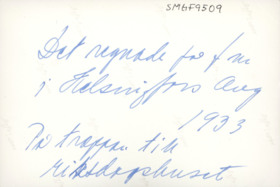 SMGF9509
Det regnade för f m
i Helsingfors Aug
1933
På trappan till
riksdagshuset